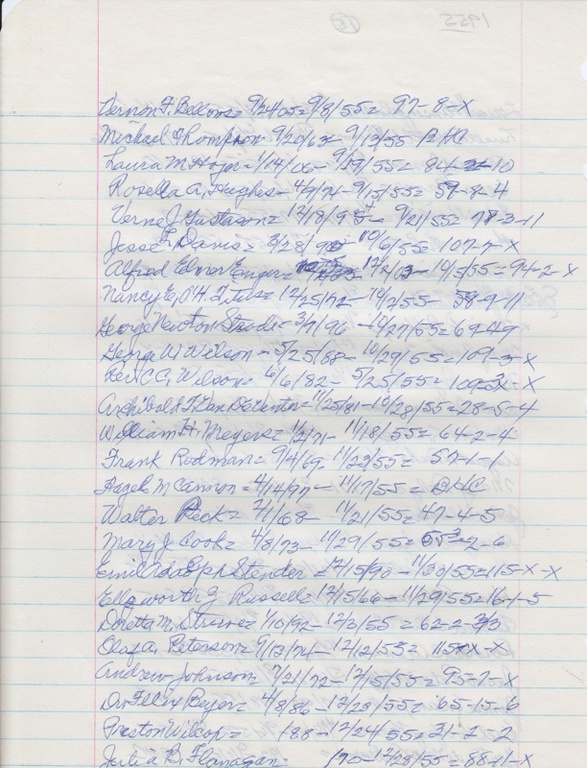 1955
15
Vernon F. Bellows= 9/24/05= 9/8/55= 97-8-X
Michael Thompson= 9/20/63= 9/13/55 RHC
Laura M. = 1/14/06- 9/19/55= 84- -10
Rosella A. Hughes= 4/9/74- 9/15/55= 59-8-4
Verne J. Gustavson= 12/18/95- 9/21/55= 78-3-11
Jesse F. Davis= 3/28/90 10/6/55= 107-7-X
Alfred Elmer = 12/2/03- 10/5/55=94-2-X
Nancy E. O'H. Titus= 12/25/72- 10/2/55- 59-9-11
George Newton = 3/7/96 -10/27/55=69-4-9
George W. Wilson- 5/25/88- 10/29/55=109-3-X
Rev. C.G. Wilson= 6/6/82- 5/25/55= 109- -X
Archibald F. Van DeVenter=11/25/81-10/28/55=28-5-4
William H. Meyers= 1/2/71- 11/18/55= 64-2-4
Frank Rodman= 9/4/69- 11/22/55= 57-1-1
Hazel M. Cannon= 4/14/97- 11/17/55=
Walter Peck= 2/1/68- 11/21/55= 47-4-5
Mary J. Cook= 4/8/73- 11/29/55= -2-6
Emil Stender =12/15/90-11/30/55=115-X-X
Ellsworth G. Russell= 12/5/66-11/29/55=16-1-5
Doretta M. = 1/10/92- 12/3/55= 62-2-3
Olaf A. Peterson= 9/13/74- 12/12/55= 115-X-X
Andrew Johnson= 7/21/72- 12/15/55= 95-7-X
Dr. Felix Beyer= 4/8/86- 12/28/55= 65-15-6
Preston Wilcox= /88- 12/24/55= 31-2-2
Julia B. Flanagan- /70-12/28/55=88-11-X